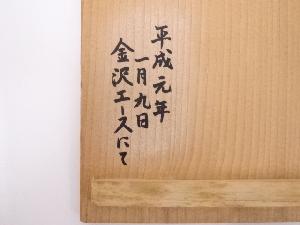 平成元年
一月九日
金沢エースにて